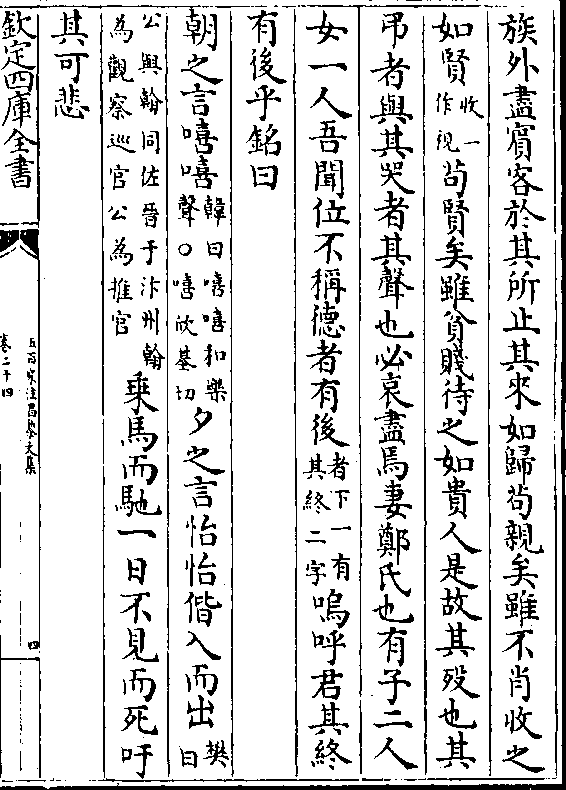 族外盡賓客於其所止其來如歸茍親矣雖不肖收之
如賢收一作視茍賢矣雖貧賤待之如貴人是故其歿也其
弔者與其哭者其聲也必哀盡焉妻鄭氏也有子二人
女一人吾聞位不稱德者有後者下一有其終二字嗚呼君其終
有後乎銘曰
朝之言嘻嘻韓曰嘻嘻和樂聲○嘻欣基切夕之言怡怡偕入而出樊曰
公與翰同佐晉于汴州翰為觀察巡官公為推官乗馬而馳一日不見而死吁
其可悲
欽定四庫全書
五百家注昌黎文集
卷二十四
四